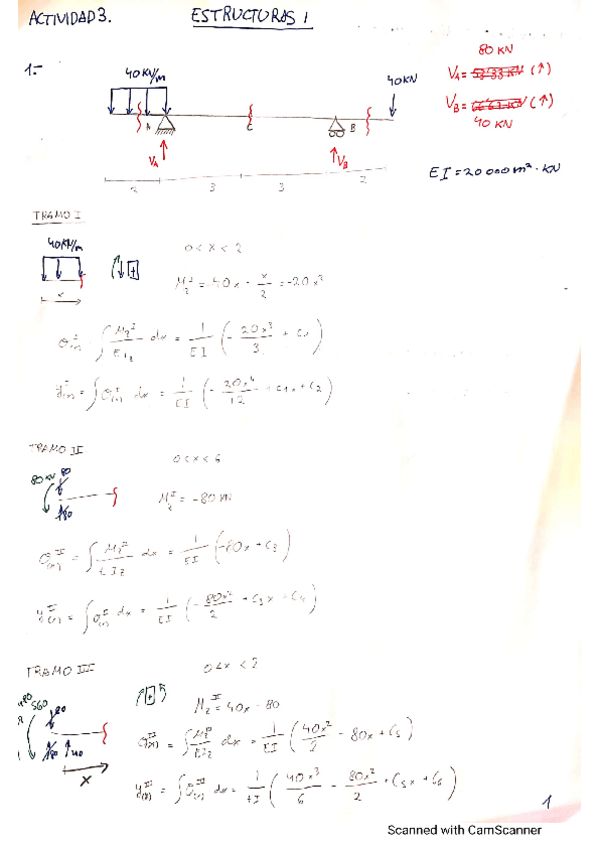 ACTIVIDAD 3. ESTRUCTURAS 1
80 KN
1.- 40 KN/m 40KN VA= (↑)
A C B VB= (↑)
40 KN
VA VB
EI = 20 000 m² · KN
2 3 3 2
TRAMO I
40KN/m 0 < x < 2
+ M_z^I = -40x · x/2 = -20x²
x
θ_(x)^I = ∫ M_z^I/EI_z dx = 1/EI (- 20x³/3 + C1)
y_(x)^I = ∫ θ_(x)^I dx = 1/EI (- 20x⁴/12 + C1x + C2)
TRAMO II 0 < x < 6
80 KN 80
80 M_z^II = -80
θ_(x)^II = ∫ M_z^II/EI_z dx = 1/EI (-80x + C3)
y_(x)^II = ∫ θ_(x)^II dx = 1/EI (- 80x²/2 + C3x + C4)
TRAMO III 0 < x < 2
80 + M_z = 40x - 80
80 40 θ_(x) = ∫ M_z/EI_z dx = 1/EI (40x²/2 - 80x + C5)
x
y_(x)^III = ∫ θ_(x)^III dx = 1/EI (40x³/6 - 80x²/2 + C5x + C6)
1
Scanned with CamScanner